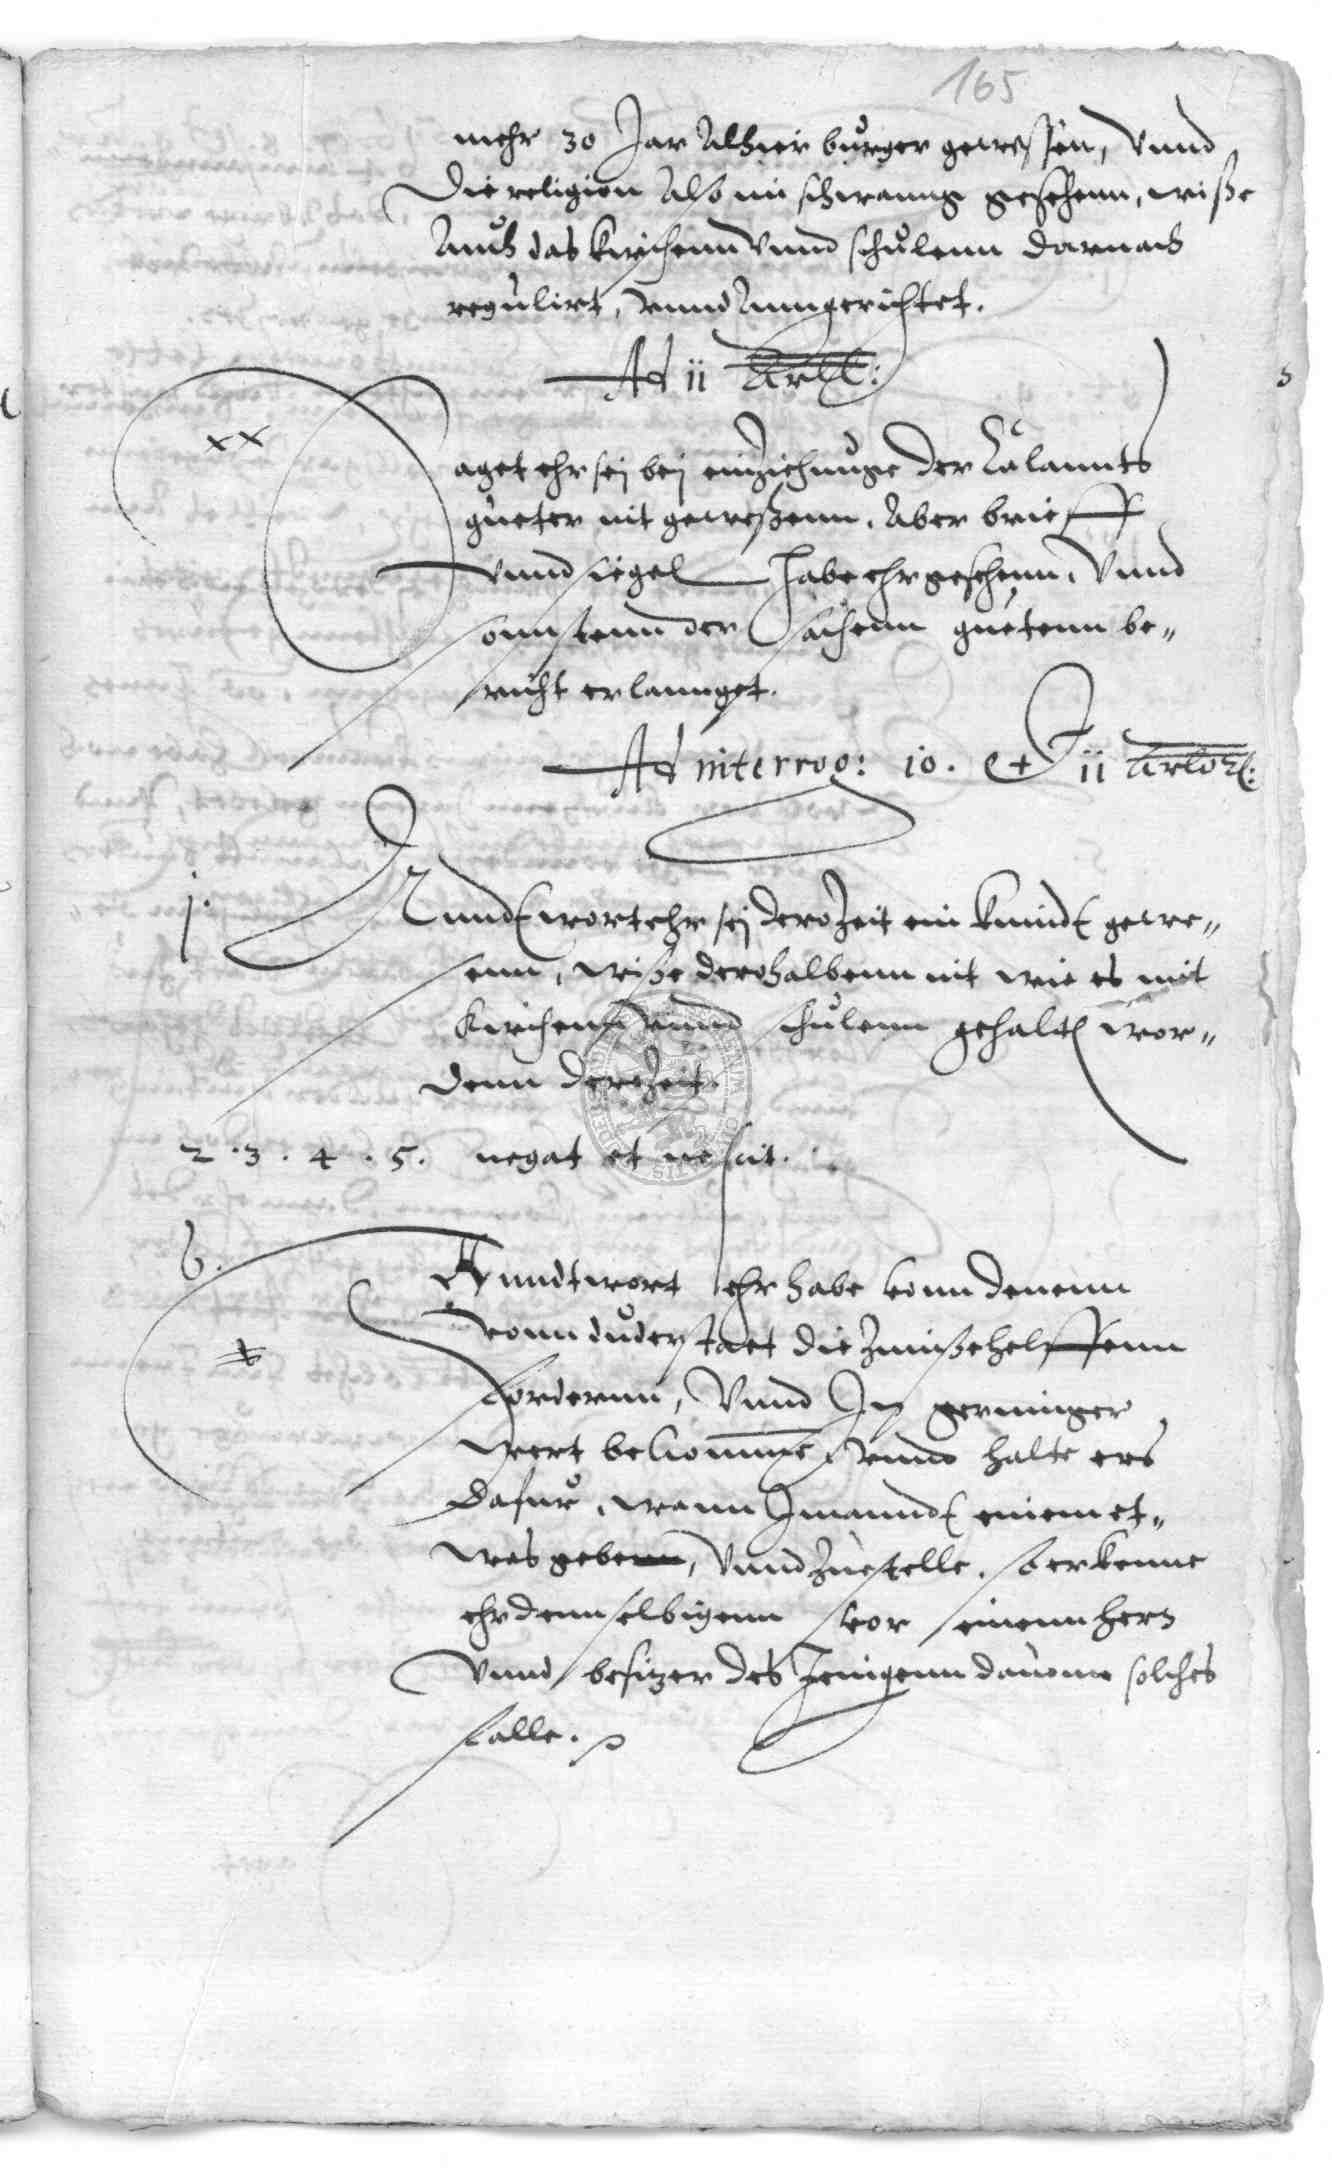 165
mehr 30 Jar Alhier burger gewessen, Vnnd
Die religion Also im schwanng gesehenn, wisse
Auch das kirchenn Vnnd schulenn darnach
regulirt, vnnd Anngerichtet.
Ad ii Artl:
xx
Saget ehr sej bej einziehunge der Calannts
gueter nit gewessenn. Aber brieff
Vnnd siegel habe ehr gesehenn, Vnnd
sonnstenn der sachenn guetenn be„
richt erlannget.
Ad interrog: 10. et ii Artlorum:
1. Anndtwort ehr sej dero Zeit ein kinndt gewe„
senn, wisse derohalbenn nit wie es mit
kirchenn vnnd schulenn gehalten wor„
denn derozeit.
2. 3. 4. 5. negat et nescit.
6. Anndtwort ehr habe vonn denenn
vonn duderstaet die Zinsse helffenn
fordernn, Vnnd In geringer
wert bekomme, vnnd halte ers
dafur, wann Jmanndt einem et„
was gebe, Vnnd Zuestelle. so erkenne
ehr dennselbigenn vor einenn hern
Vnnd besitzer des Jenigenn dauone solches
falle.